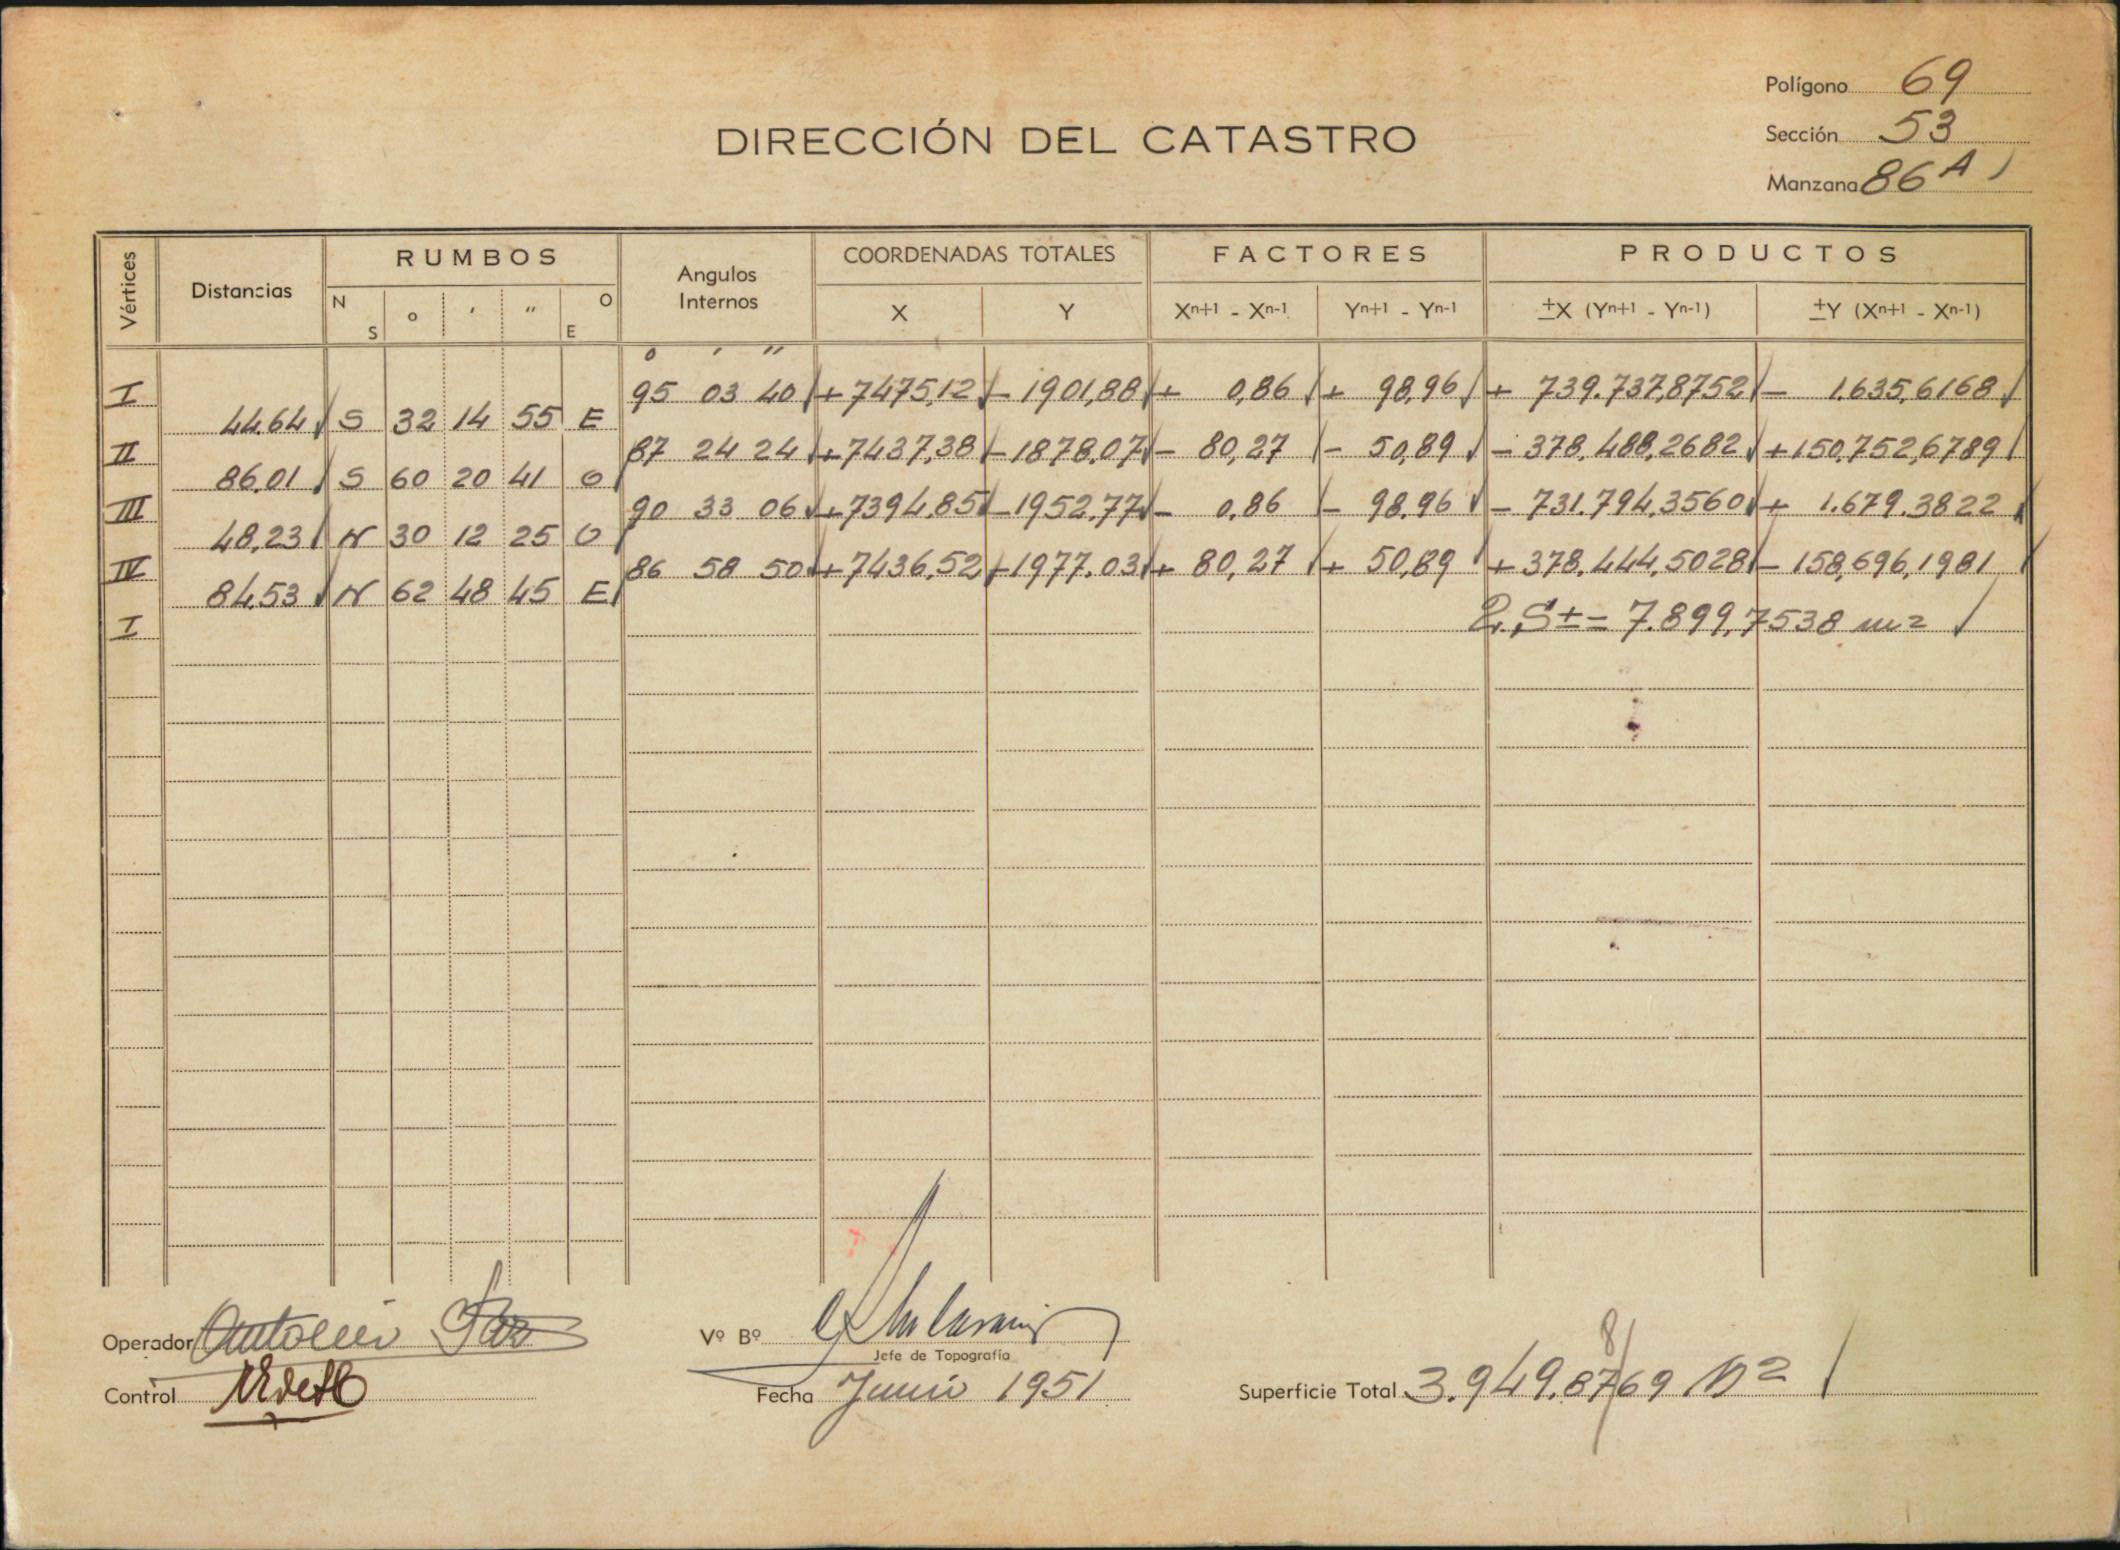 Polígono 69
DIRECCIÓN DEL CATASTRO
Sección 53
Manzana 86 A
Vértices Distancias RUMBOS Angulos Internos COORDENADAS TOTALES FACTORES PRODUCTOS
N S o ′ ″ O E X Y Xn+1 - Xn-1 Yn+1 - Yn-1 ±X (Yn+1 - Yn-1) ±Y (Xn+1 - Xn-1)
o ′ ″
I 95 03 40 +7475,12 -1901,88 + 0,86 + 98,96 + 739.737,8752 - 1.635,6168
44,64 S 32 14 55 E
II 87 24 24 +7437,38 -1878,07 - 80,27 - 50,89 - 378.488,2682 +150.752,6789
86,01 S 60 20 41 O
III 90 33 06 +7394,85 -1952,77 - 0,86 - 98,96 - 731.794,3560 + 1.679,3822
48,23 N 30 12 25 O
IV 86 58 50 +7436,52 -1977,03 + 80,27 + 50,89 + 378.444,5028 - 158,696,1981
84,53 N 62 48 45 E
I 2.S± = 7.899,7538 m2
Operador Vº Bº
Jefe de Topografía
8
Control Fecha Junio 1951 Superficie Total 3.949,8769 M2